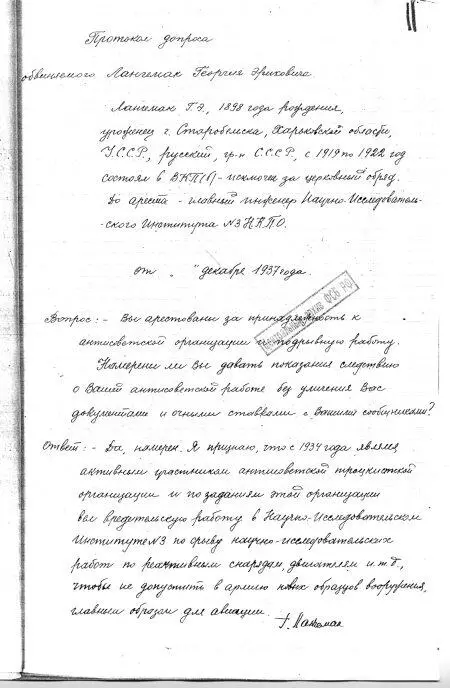 11
Протокол допроса
обвиняемого Лангемак Георгия Эриховича
Лангемак Г.Э, 1898 года рождения,
уроженец г. Старобельска, Харьковской области,
У.С.С.Р., русский, гр-н С.С.С.Р, с 1919 по 1922 год
состоял в ВКП(б) - исключен за церковный обряд.
До ареста - главный инженер Научно-Исследователь-
ского Института №3 НКПО.
от " " декабря 1937 года.
Вопрос: - Вы арестованы за принадлежность к
антисоветской организации и подрывную работу.
Намерены ли Вы давать показания следствию
о Вашей антисоветской работе без уличения Вас
документами и очными ставками с Вашими сообщниками?
Ответ: - Да, намерен. Я признаю, что с 1934 года являлся
активным участником антисоветской троцкистской
организации и по заданиям этой организации
вел вредительскую работу в Научно-Исследовательском
Институте №3 по срыву научно-исследовательских
работ по реактивным снарядам, двигателям и т.д.,
чтобы не допустить в армию новых образцов вооружения,
главным образом для авиации.
Г. Лангемак
ФСБ РФ